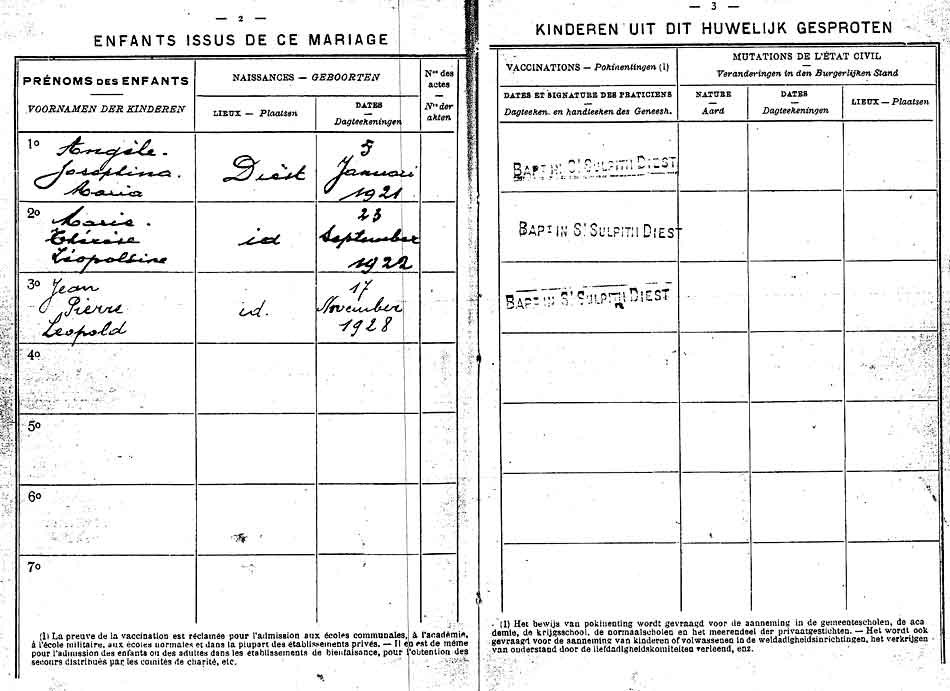 — 2 —
ENFANTS ISSUS DE CE MARIAGE
PRÉNOMS DES ENFANTS
—
VOORNAMEN DER KINDEREN
NAISSANCES — GEBOORTEN
LIEUX — Plaatsen
DATES
—
Dagteekeningen
Nos des
actes
—
Nrs der
akten
1º Angèle.
Josephina.
Maria
Diest
5
Januari
1921
2º Maria.
Thérèse
Léopoldine
id
23
September
1922
3º Jean
Pierre
Leopold
id.
17
November
1928
4º
5º
6º
7º
(1) La preuve de la vaccination est réclamée pour l'admission aux écoles communales, à l'académie,
à l'école militaire, aux écoles normales et dans la plupart des établissements privés. — Il en est de même
pour l'admission des enfants ou des adultes dans les établissements de bienfaisance, pour l'obtention des
secours distribués par les comités de charité, etc.
— 3 —
KINDEREN UIT DIT HUWELIJK GESPROTEN
VACCINATIONS — Pokinentingen (1)
DATES ET SIGNATURE DES PRATICIENS
—
Dagteeken. en handteeken des Geneesh.
MUTATIONS DE L'ÉTAT CIVIL
—
Veranderingen in den Burgerlijken Stand
NATURE
—
Aard
DATES
—
Dagteekeningen
LIEUX — Plaatsen
BAPT IN ST SULPITH DIEST
BAPT IN ST SULPITH DIEST
BAPT IN ST SULPITH DIEST
(1) Het bewijs van pokinenting wordt gevraagd voor de aanneming in de gemeentescholen, de aca
demie, de krijgsschool, de normaalscholen en het meerendeel der privaatgestichten. — Het wordt ook
gevraagd voor de aanneming van kinderen of volwassenen in de weldadigheidsinrichtingen, het verkrijgen
van onderstand door de liefdadigheidskomiteiten verleend, enz.